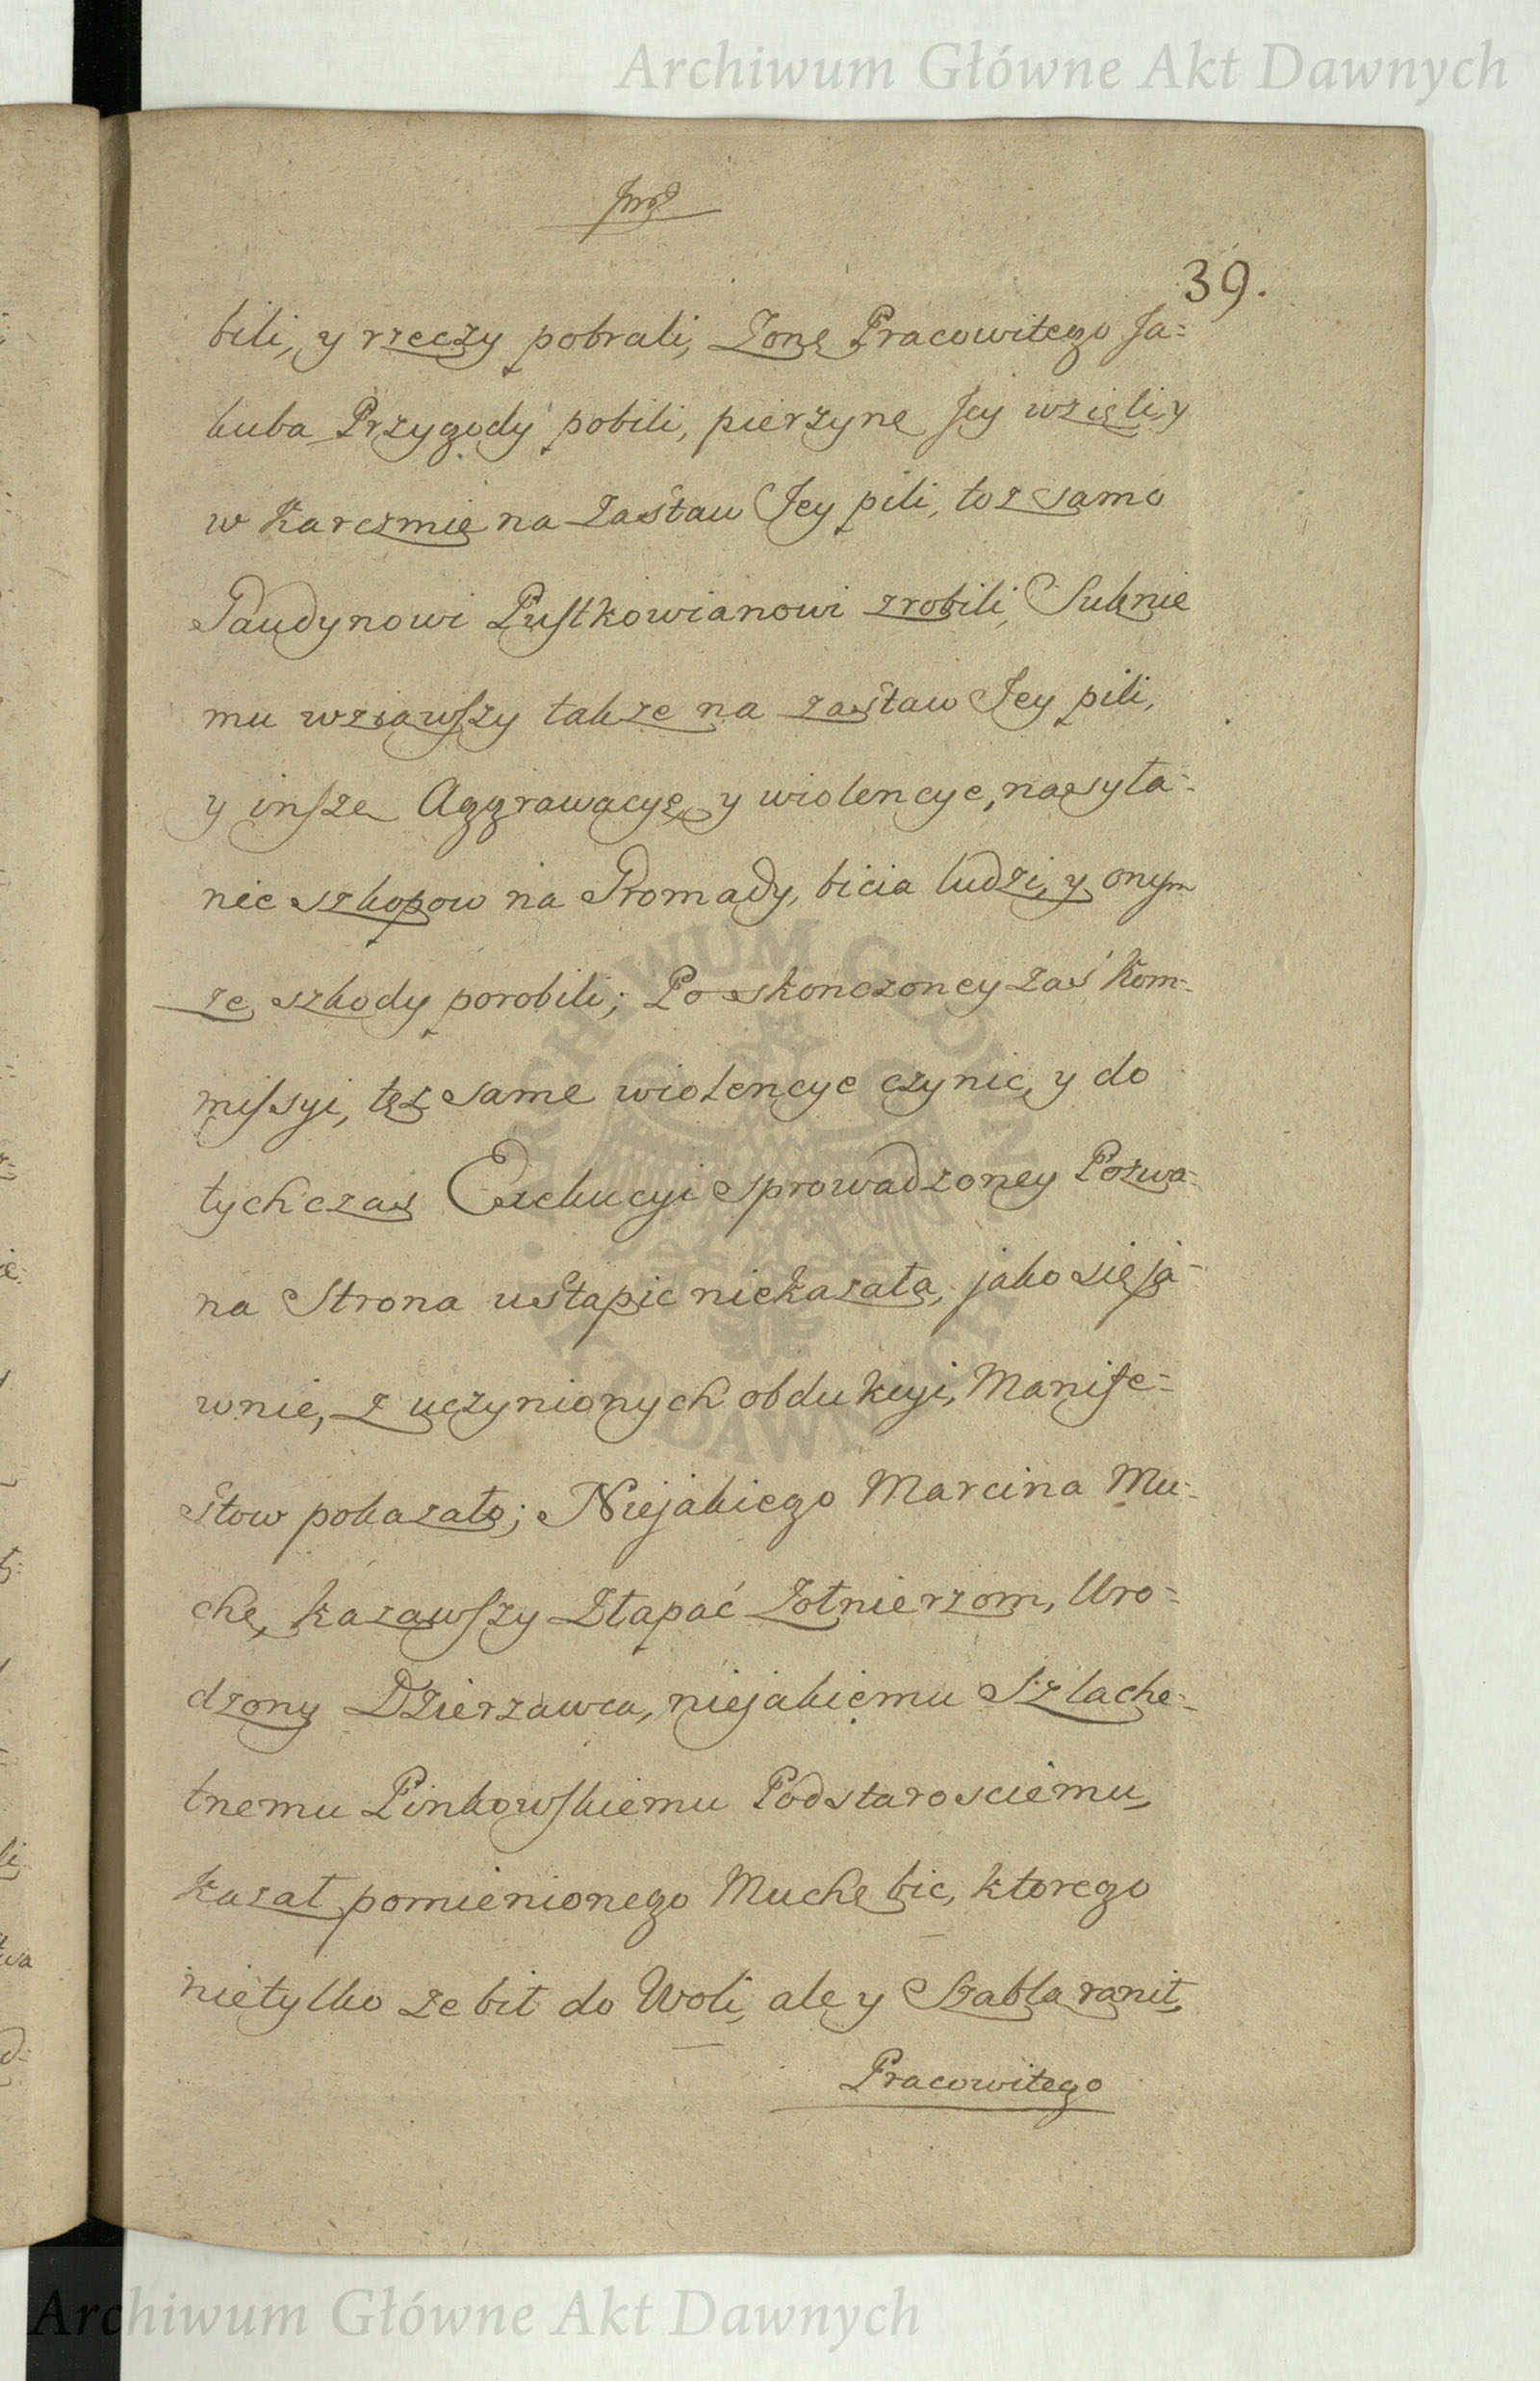 Archiwum Główne Akt Dawnych
39.
bili, y rzeczy pobrali, Zonę Pracowitego Ja=
kuba Przygody pobili, pierzyne Jey wzięli, y
w Karczmie na Zastaw Jey pili, toz samo
Paudynowi Pustkowianowi zrobili, Suknie
mu wziawszy takze na zastaw Jey pili,
y insze Aggrawacye, y wiolencye, nasyła=
nie szkopow na Gromady, bicia ludzi, y onym
ze szkody porobili; Po skonczoney zaś Kom=
missyi, tęz same wiolencye czynic, y do
tychczas Exekucyi sprowadzoney Pozwa=
na Strona ustapic niekazała, jako się ja=
wnie, z uczynionych obdukcyi, Manife=
stow pokazało; Niejakiego Marcina Mu=
chę, kazawszy Złapać Zołnierzom, Uro=
dzony Dzierzawca, niejakiemu Szlache=
tnemu Pinkowskiemu Podstarosciemu,
kazał pomienionego Muchę bic, ktorego
nietylko ze bił do Woli, ale y Szabla ranił,
Pracowitego
ARCHIWUM GŁÓWNE AKT DAWNYCH
Archiwum Główne Akt Dawnych